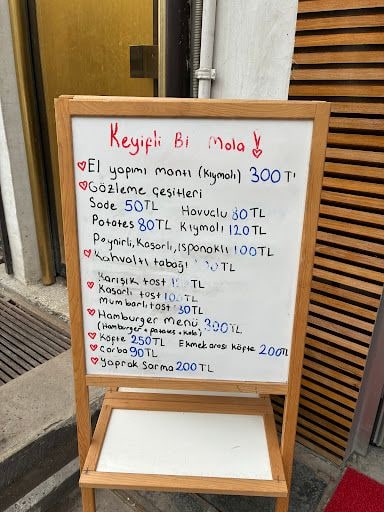 Keyifli Bi Mola!
El yapımı mantı (kıymalı) 300 Tl
Gözleme çeşitleri
Sade 50TL Havuclu 80TL
Patates 80TL Kıymalı 120TL
Peynirli, Kaşarlı, ıspanaklı 100TL
Kahvaltı tabağı TL
Karışık tost TL
Kaşarlı tost TL
Mumbarlı tost TL
Hamburger menü 300TL
(Hamburger + patates + kola)
Köfte 250TL Ekmek arası köfte 200TL
Çorba 90TL
Yaprak Sarma 200TL